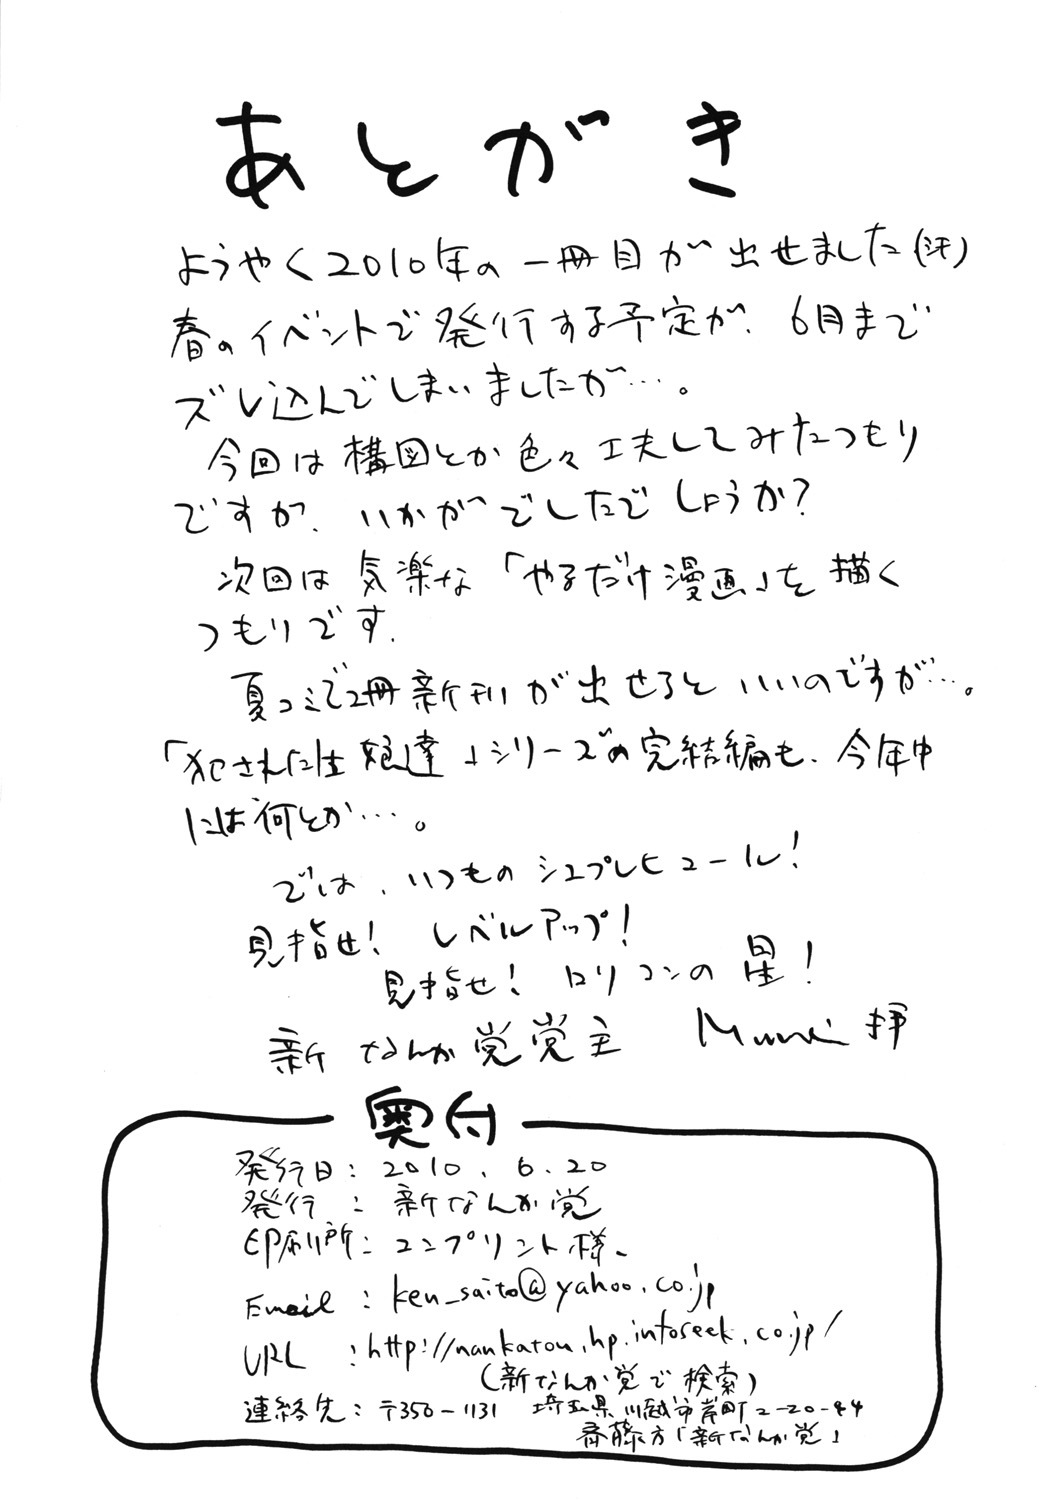 あとがき
ようやく2010年の一冊目が出せました(汗)
春のイベントで発行する予定が、6月まで
ズレ込んでしまいましたが…。
今回は構図とか色々工夫してみたつもり
ですが、いかがでしたでしょうか?
次回は気楽な「やるだけ漫画」を描く
つもりです。
夏コミで2冊新刊が出せるといいのですが…。
「犯された生娘達」シリーズの完結編も、今年中
には何とか…。
では、いつものシュプレヒコール!
見指せ! レベルアップ!
見指せ! ロリコンの星!
新なんか党党主 拝
奥付
発行日:2010.6.20
発行 :新なんか党
印刷所:コンプリント様、
Email :ken_saito@yahoo.co.jp
URL :http://nankatou.hp.infoseek.co.jp/
(新なんか党で検索)
連絡先:〒350-1131 埼玉県川越市岸町2-20-44
斉藤方「新なんか党」